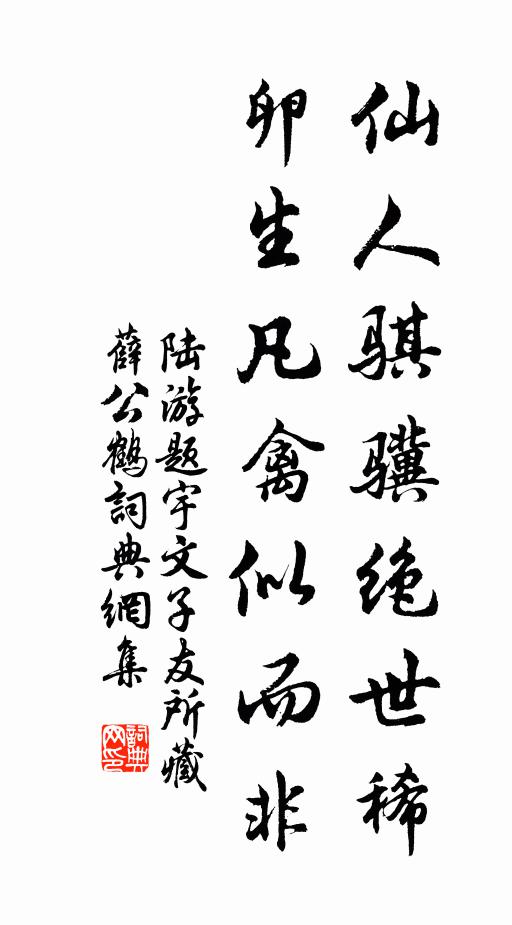 仙人骐骥绝世稀
卵生凡禽似而非
陆游题宇文子友所藏
薛公鹤詞典網集
詞典
网印